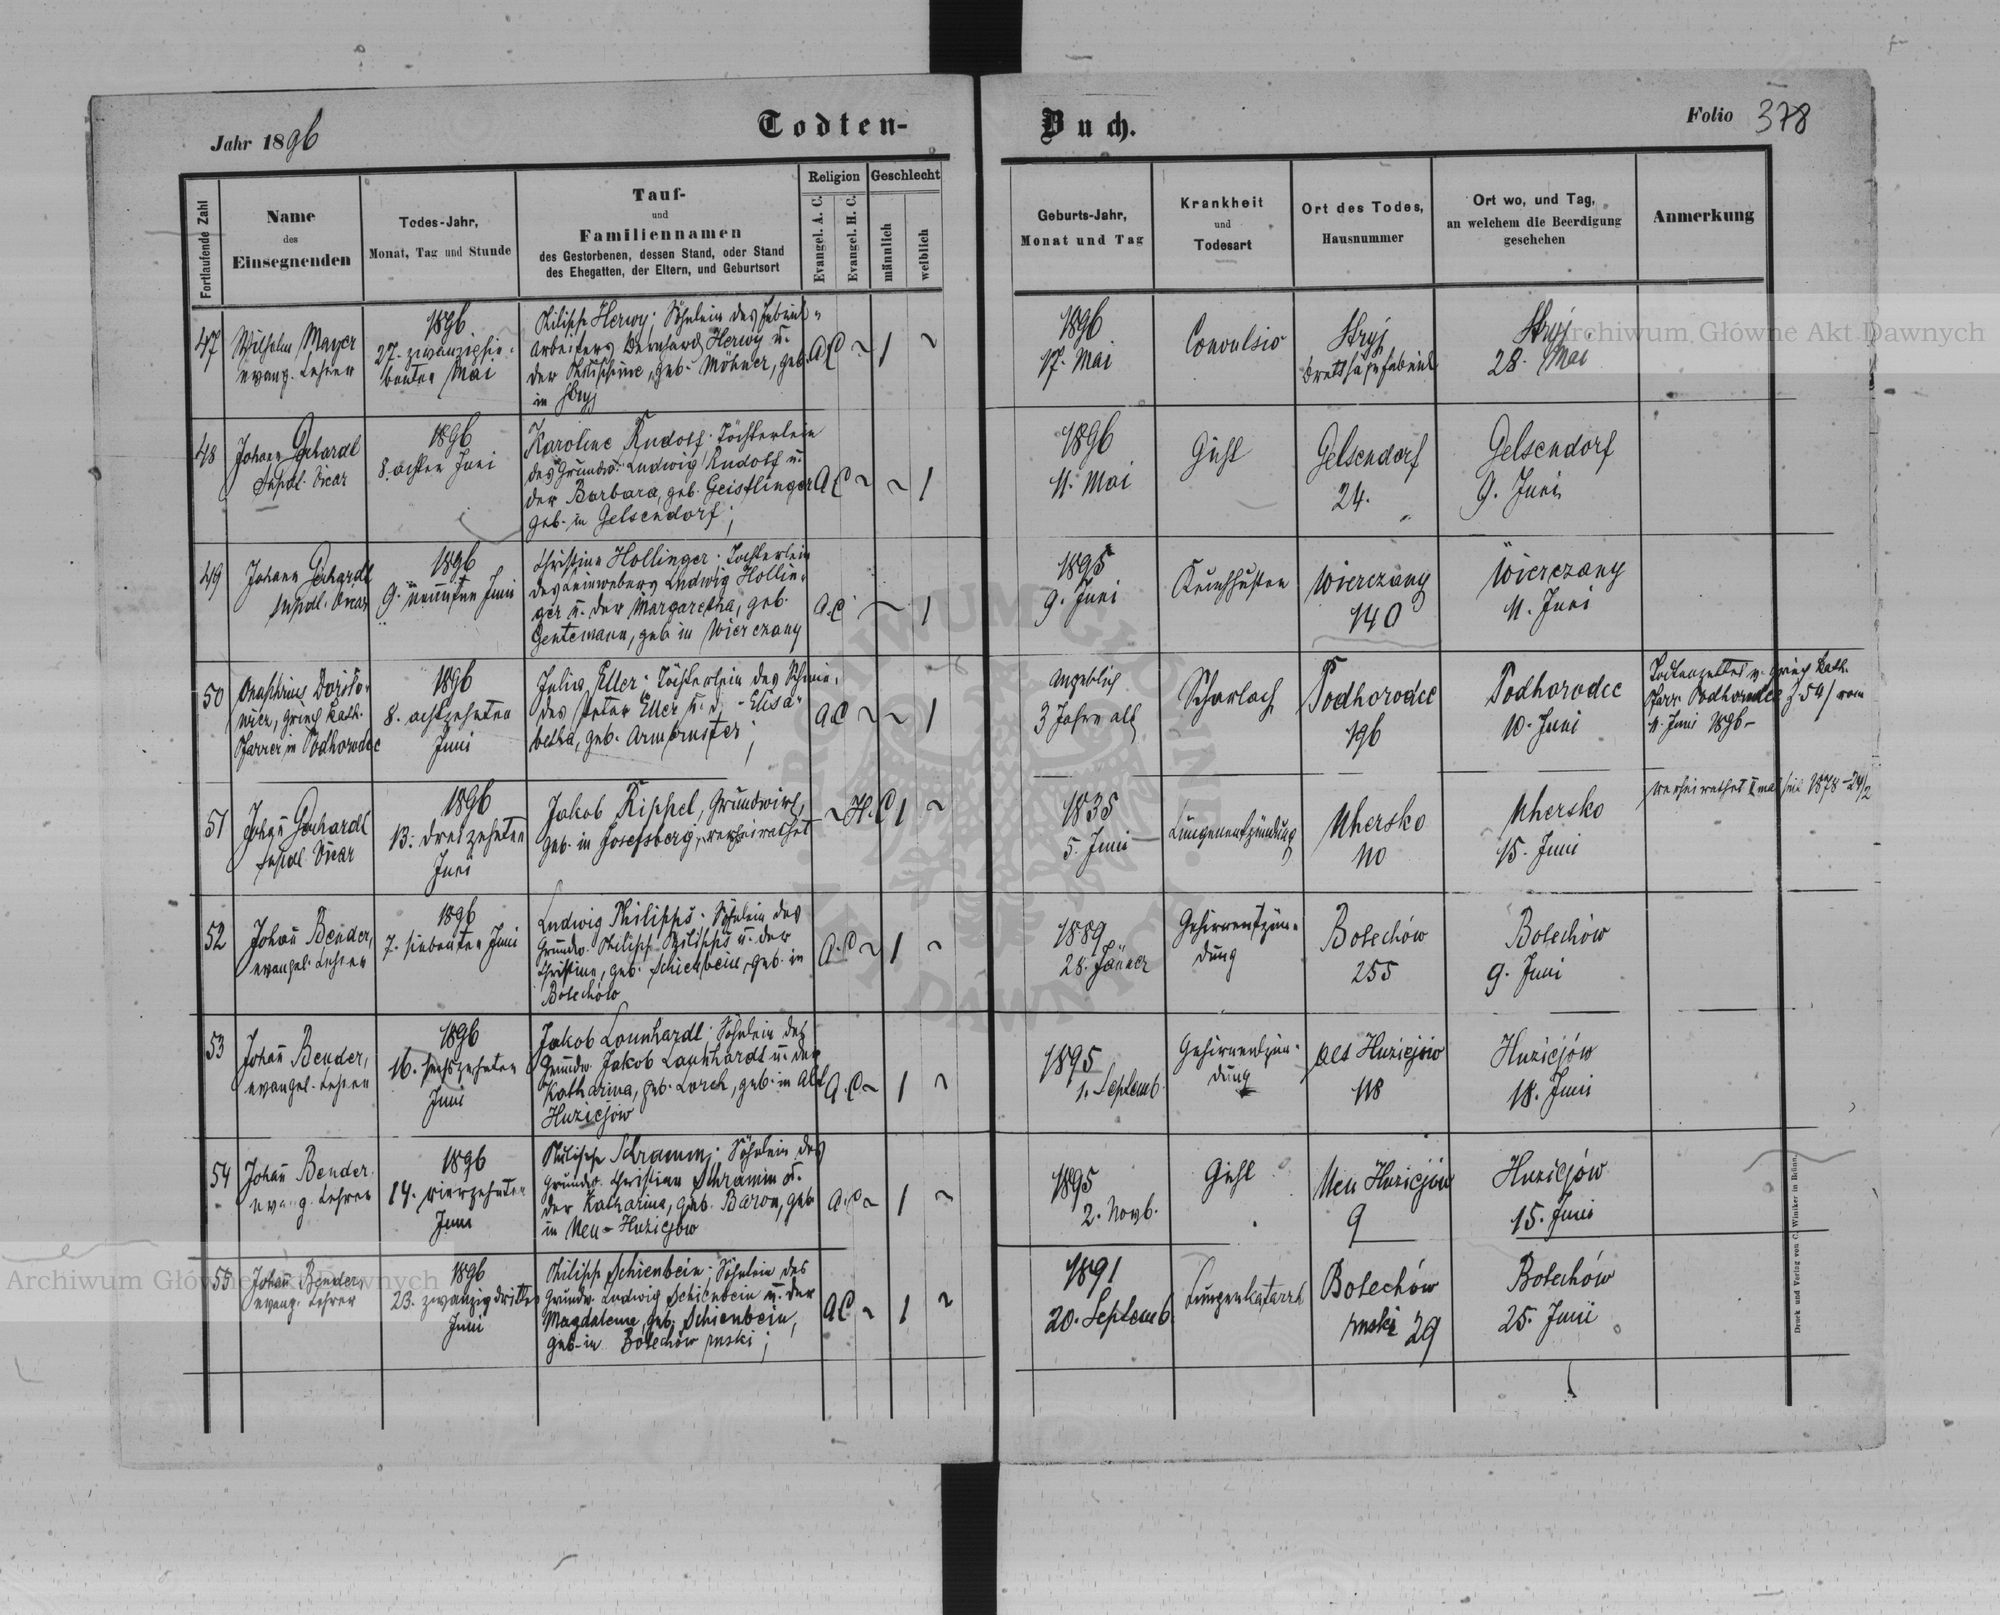 Jahr 1896
Todten-
Buch.
Folio 378
Fortlaufende Zahl
Name
des
Einsegnenden
Todes-Jahr,
Monat, Tag und Stunde
Tauf-
und
Familiennamen
des Gestorbenen, dessen Stand, oder Stand
des Ehegatten, der Eltern, und Geburtsort
Religion
Evangel. A. C.
Evangel. H. C.
Geschlecht
männlich
weiblich
Geburts-Jahr,
Monat und Tag
Krankheit
und
Todesart
Ort des Todes,
Hausnummer
Ort wo, und Tag,
an welchem die Beerdigung
geschehen
Anmerkung
47
Wilhelm Mayer
evang. Lehrer
1896
27. zwanzigsie-
benten Mai
Philipp Herwy; Söhnlein des Fabrik-
arbeiters Bernhard Herwy u.
der Philippine, geb. Möhner, geb.
in Stryj
A.C. ~ 1 ~
1896
17. Mai
Convulsio
Stryj
Brettsägefabrik
Stryj
28. Mai
48
Johann Gerhardt
Vicar
1896
8. achten Juni
Karoline Rudolf; Töchterlein
des Grundw. Ludwig Rudolf u.
der Barbara, geb. Geistlinger
geb. in Gelsendorf;
A.C. ~ ~ 1
1896
11. Mai
Gicht
Gelsendorf
24.
Gelsendorf
9. Juni
49
Johann Gerhardt
Vicar
1896
9. neunten Juni
Christine Hollinger; Tochterlein
des Leinwebers Ludwig Hollin-
ger u. der Margaretha, geb.
Gentemann, geb in Wierczany
A.C. ~ 1
1895
9. Juni
Keuchhusten
Wierczany
140
Wierczany
11. Juni
50
griech. kath.
Pfarrer in Podhorodce
1896
8. achtzehnten
Juni
Julia Eller; Töchterlein des Schmie-
des Peter Eller u. d. Elisa-
betha, geb. Armbruster;
A.C. ~ ~ 1
Angeblich
3 Jahre alt
Scharlach
Podhorodce
196
Podhorodce
10. Juni
Todtenzettel v. griech. kath.
Pfarr. Podhorodce z. 54/ vom
11. Juni 1896-
51
Johann Gerhardt
Vicar
1896
13. dreizehnten
Juni
Jakob Rippel, Grundwirt,
geb. in Josefsberg, verheirathet
~ H.C. 1 ~
1835
5. Juni
Lungenentzündung
Uhersko
110
Uhersko
15. Juni
verheirathet mal seit 1878 -24/2
52
Johann Bender,
evangel. Lehrer
1896
7. siebenten Juni
Ludwig Philipps; Söhnlein des
Grundw. Philipp Philipps u. der
Christine, geb. Schienbein, geb. in
Bolechów
A.C. ~ 1 ~
1889
28. Jänner
Gehirnentzün-
dung
Bolechów
255
Bolechów
9. Juni
53
Johann Bender,
evangel. Lehrer
1896
16. sechszehnten
Juni
Jakob Launhardt; Söhnlein des
Grundw. Jakob Launhardt u. der
Katharina, geb. Lorch, geb. in Alt
Huziejów
A.C. ~ 1 ~
1895
1. Septemb.
Gehirnentzün-
dung
Alt Huziejów
118
Huziejów
18. Juni
54
Johann Bender
evang. Lehrer
1896
14. vierzehnten
Juni
Philipp Schramm; Söhnlein des
Grundw. Christian Schramm u.
der Katharina, geb. Baron, geb.
in Neu-Huziejów
A.C. ~ 1 ~
1895
2. Novb.
Gicht
Neu Huziejów
9
Huziejów
15. Juni
55
Johann Bender,
evang. Lehrer
1896
23. zwanzigdritten
Juni
Philipp Schienbein; Söhnlein des
Grundw. Ludwig Schienbein u. der
Magdalena, geb. Schienbein,
geb. in Bolechów ruski;
A.C. ~ 1 ~
1891
20. Septemb.
Lungenkatarrh
Bolechów
ruski 29
Bolechów
25. Juni
Druck und Verlag von C. Winiker in Brünn.
Archiwum Główne Akt Dawnych
Archiwum Główne Akt Dawnych
ARCHIWUM GŁÓWNE AKT DAWNYCH